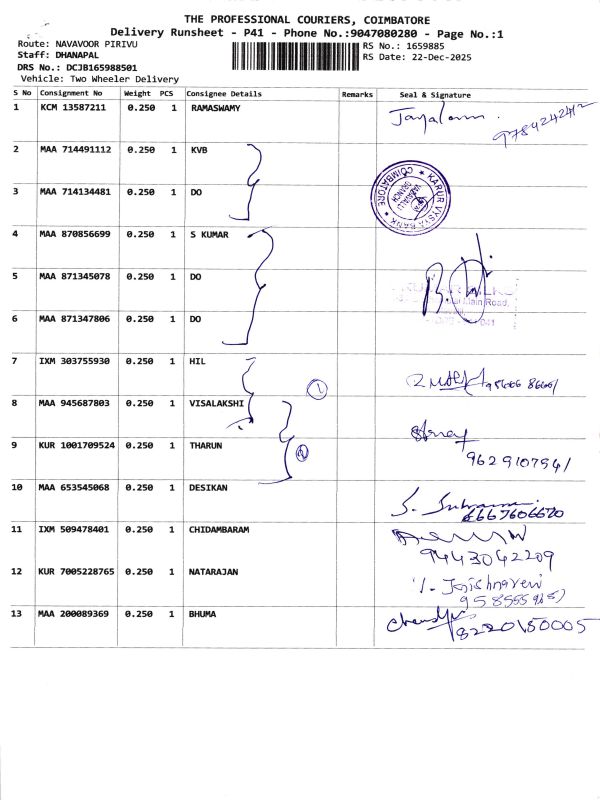 THE PROFESSIONAL COURIERS, COIMBATORE
Delivery Runsheet - P41 - Phone No.:9047080280 - Page No.:1
Route: NAVAVOOR PIRIVU
RS No.: 1659885
Staff: DHANAPAL
RS Date: 22-Dec-2025
DRS No.: DCJB165988501
Vehicle: Two Wheeler Delivery
S No Consignment No Weight PCS Consignee Details Remarks Seal & Signature
1 KCM 13587211 0.250 1 RAMASWAMY 9784242412
2 MAA 714491112 0.250 1 KVB
3 MAA 714134481 0.250 1 DO
KARUR VYSYA BANK * COIMBATORE *
VADAVALLI BRANCH
4 MAA 870856699 0.250 1 S KUMAR
5 MAA 871345078 0.250 1 DO
Main Road,
6 MAA 871347806 0.250 1 DO
041
7 IXM 303755930 0.250 1 HIL
1
8 MAA 945687803 0.250 1 VISALAKSHI
9 KUR 1001709524 0.250 1 THARUN 9629107541
2
10 MAA 653545068 0.250 1 DESIKAN
11 IXM 509478401 0.250 1 CHIDAMBARAM 9443042209
12 KUR 7005228765 0.250 1 NATARAJAN
13 MAA 200089369 0.250 1 BHUMA 8220150005